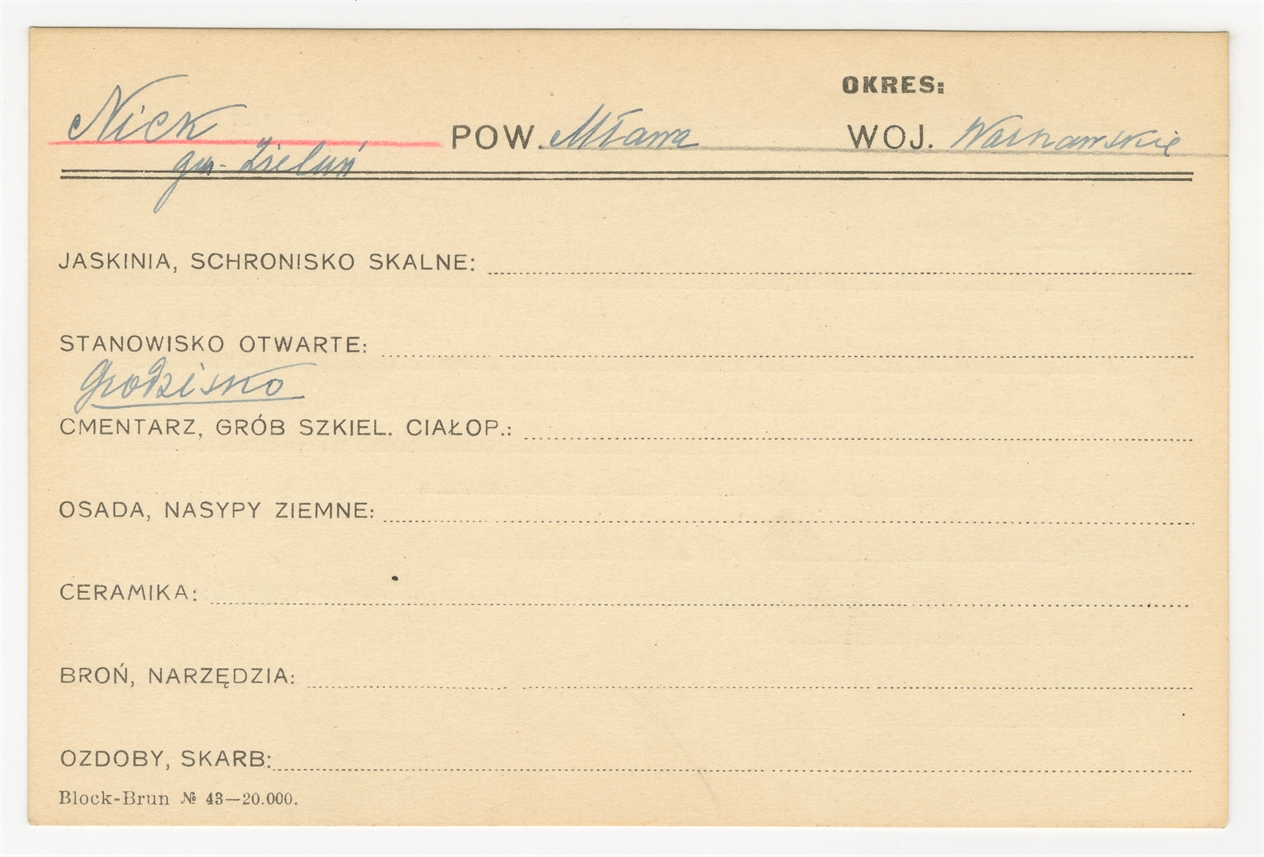 OKRES:
Nick POW. Mława WOJ. Warszawskie
gm. Zieluń
JASKINIA, SCHRONISKO SKALNE:
STANOWISKO OTWARTE:
Grodzisko
CMENTARZ, GRÓB SZKIEL. CIAŁOP.:
OSADA, NASYPY ZIEMNE:
CERAMIKA:
BROŃ, NARZĘDZIA:
OZDOBY, SKARB:
Block-Brun № 43—20.000.